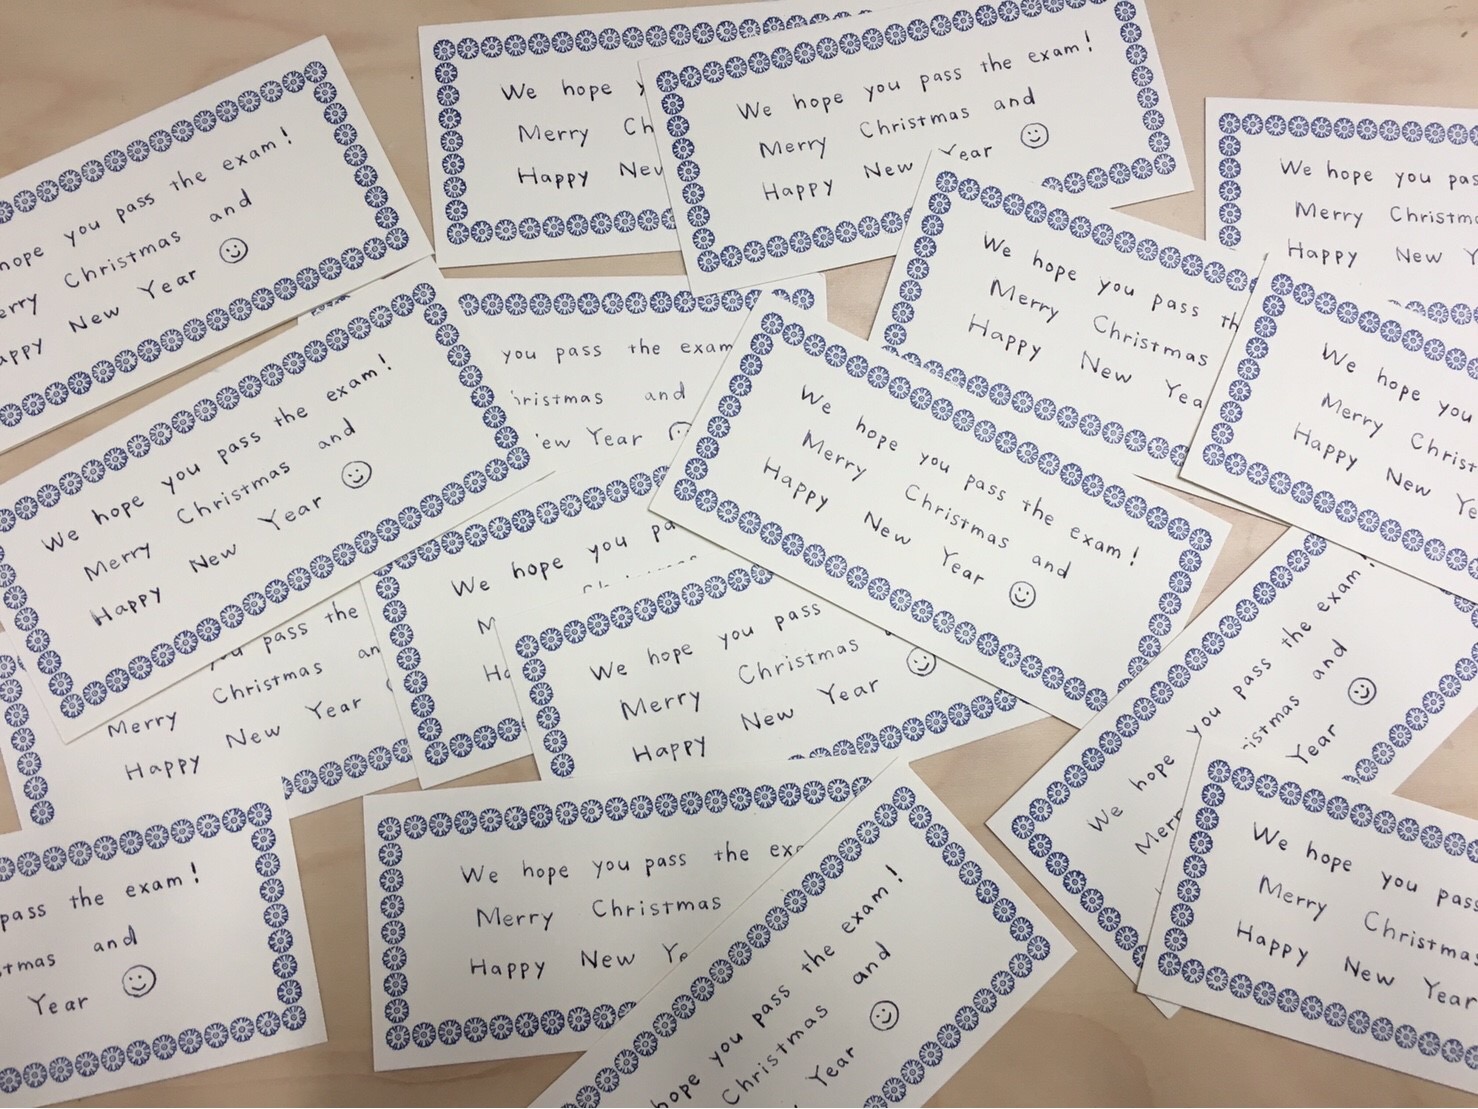 hope you pass the exam!
Merry Christmas and
Happy New Year
We hope
Merry Ch
Happy New
We hope you pass the exam!
Merry Christmas and
Happy New Year
We hope you pass
Merry Christmas
Happy New
We hope you pass the
Merry Christmas
Happy New Year
you pass the exam
Christmas and
New Year
We hope you pass the exam!
Merry Christmas and
Happy New Year
We hope you pass the exam!
Merry Christmas and
Happy New Year
We hope you
Merry Christmas
Happy New Ye
We hope you pa
We hope you pass
Merry Christmas
Happy New Year
you pass the
Merry Christmas an
Happy New Year
We hope you pass the exam!
Merry Christmas and
Year
pass the exam!
stmas and
Year
We hope you pass the exa
Merry Christmas
Happy New Ye
hope you pass the exam!
Christmas and
Year
We hope you pass
Merry Christmas
Happy New Year